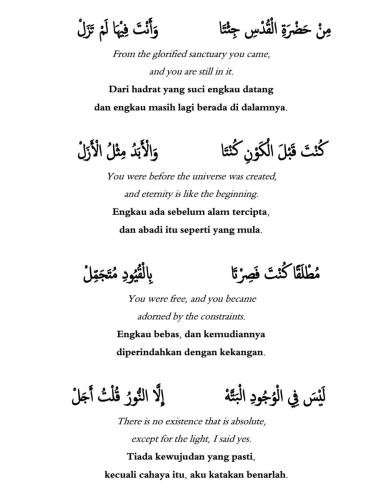 مِنْ حَضْرَةِ الْقُدْسِ جِئْتَا وَأَنْتَ فِيْهَا لَمْ تَزَلْ
From the glorified sanctuary you came,
and you are still in it.
Dari hadrat yang suci engkau datang
dan engkau masih lagi berada di dalamnya.
كُنْتَ قَبْلَ الْكَوْنِ كُنْتَا وَالْأَبَدُ مِثْلُ الْأَزَلْ
You were before the universe was created,
and eternity is like the beginning.
Engkau ada sebelum alam tercipta,
dan abadi itu seperti yang mula.
مُطْلَقًا كُنْتَ فَصِرْتَا بِالْقُيُودِ مُتَجَمِّلْ
You were free, and you became
adorned by the constraints.
Engkau bebas, dan kemudiannya
diperindahkan dengan kekangan.
لَيْسَ فِي الْوُجُودِ الْبَتَّهْ إِلَّا النُّورُ قُلْتُ أَجَلْ
There is no existence that is absolute,
except for the light, I said yes.
Tiada kewujudan yang pasti,
kecuali cahaya itu, aku katakan benarlah.